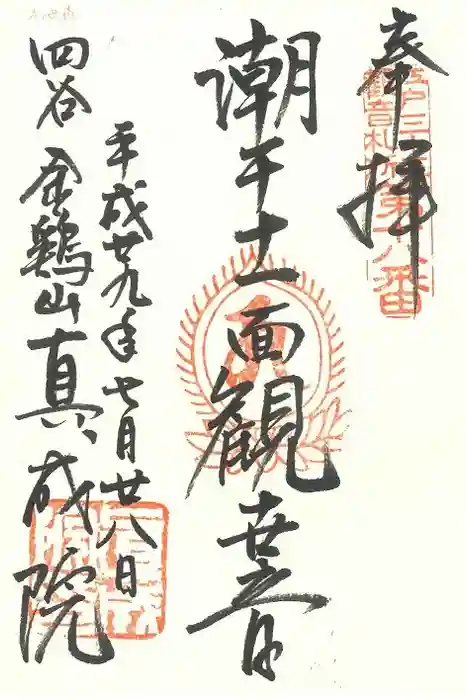 奉拝
江戸三十三観音札所第十八番
潮干十一面観世音
平成廿九年七月廿八日
四谷 金鶏山 真成院